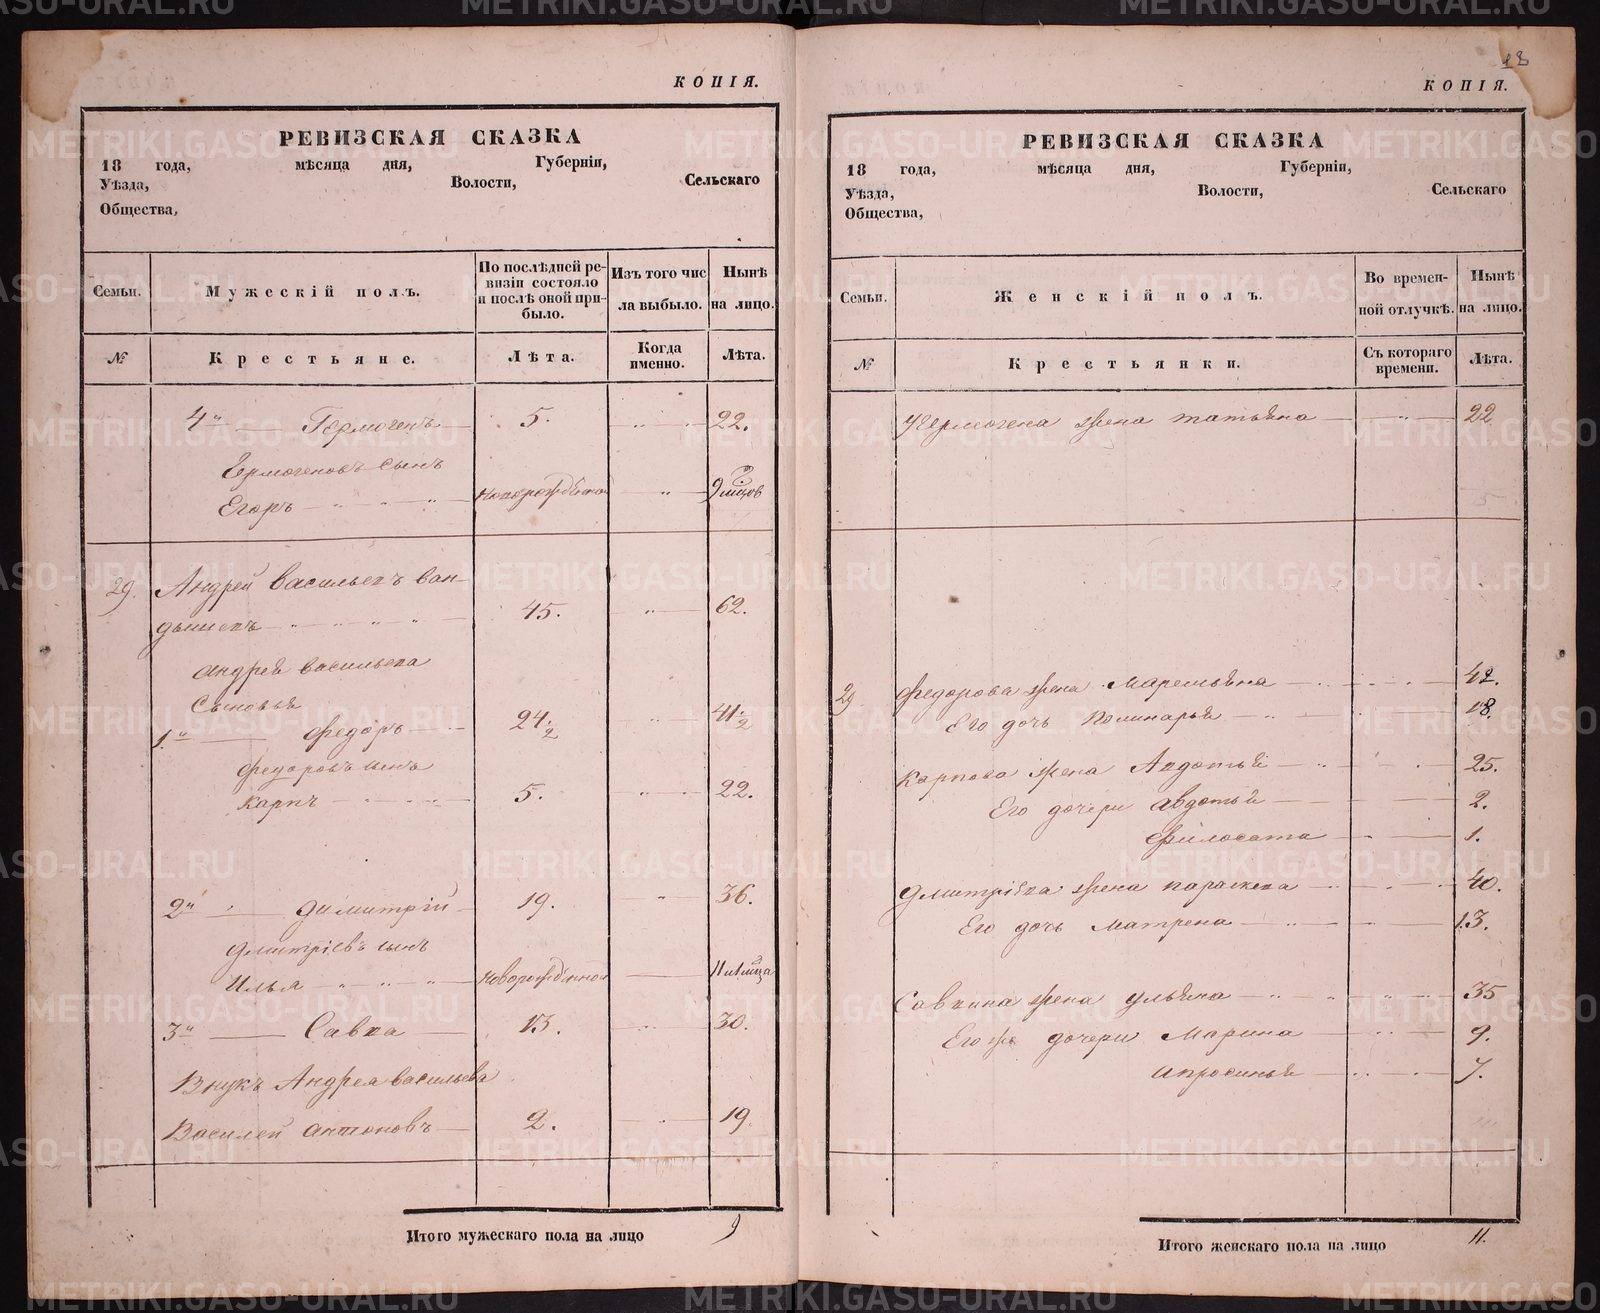 КОПІЯ.
РЕВИЗСКАЯ СКАЗКА
18 года, мѣсяца дня, Губерніи,
Уѣзда, Волости, Сельскаго
Общества,
Семьи. Мужескій полъ. По послѣдней ревизіи состояло и послѣ оной прибыло. Изъ того числа выбыло. Нынѣ на лицо.
№ Крестьяне. Лѣта. Когда именно. Лѣта.
4й Гермогенъ 5. 22.
Ермогеновъ сынъ
Егоръ новорожденной 9 мцов
29. Андрей Васильевъ Ван-
дышевъ 45. 62.
Андрея Васильева
Сыновья
1й Федоръ 24 1/2 41 1/2
Федоровъ сынъ
Карпъ 5. 22.
2й Димитрій 19. 36.
Дмитріевъ сынъ
Илья новорожденной 11 мца
3й Савва 13. 30.
Внукъ Андрея Васильева
Василей Антоновъ 2. 19
Итого мужескаго пола на лицо 9
18
КОПІЯ.
РЕВИЗСКАЯ СКАЗКА
18 года, мѣсяца дня, Губерніи,
Уѣзда, Волости, Сельскаго
Общества,
Семьи. Женскій полъ. Во временной отлучкѣ. Нынѣ на лицо.
№ Крестьянки. Съ котораго времени. Лѣта.
Гермогена жена Татьяна 22
29 Федорова жена Маремьяна 42.
Его дочь Полинарья 18.
Карпова жена Авдотья 25.
Его дочери Авдотья 2.
Филосата 1.
Дмитріева жена Параскева 40.
Его дочь Матрена 13.
Саввина жена Ульяна 35
Его же дочери Марина 9.
Апросинья 7.
Итого женскаго пола на лицо 11.
METRIKI.GASO-URAL.RU